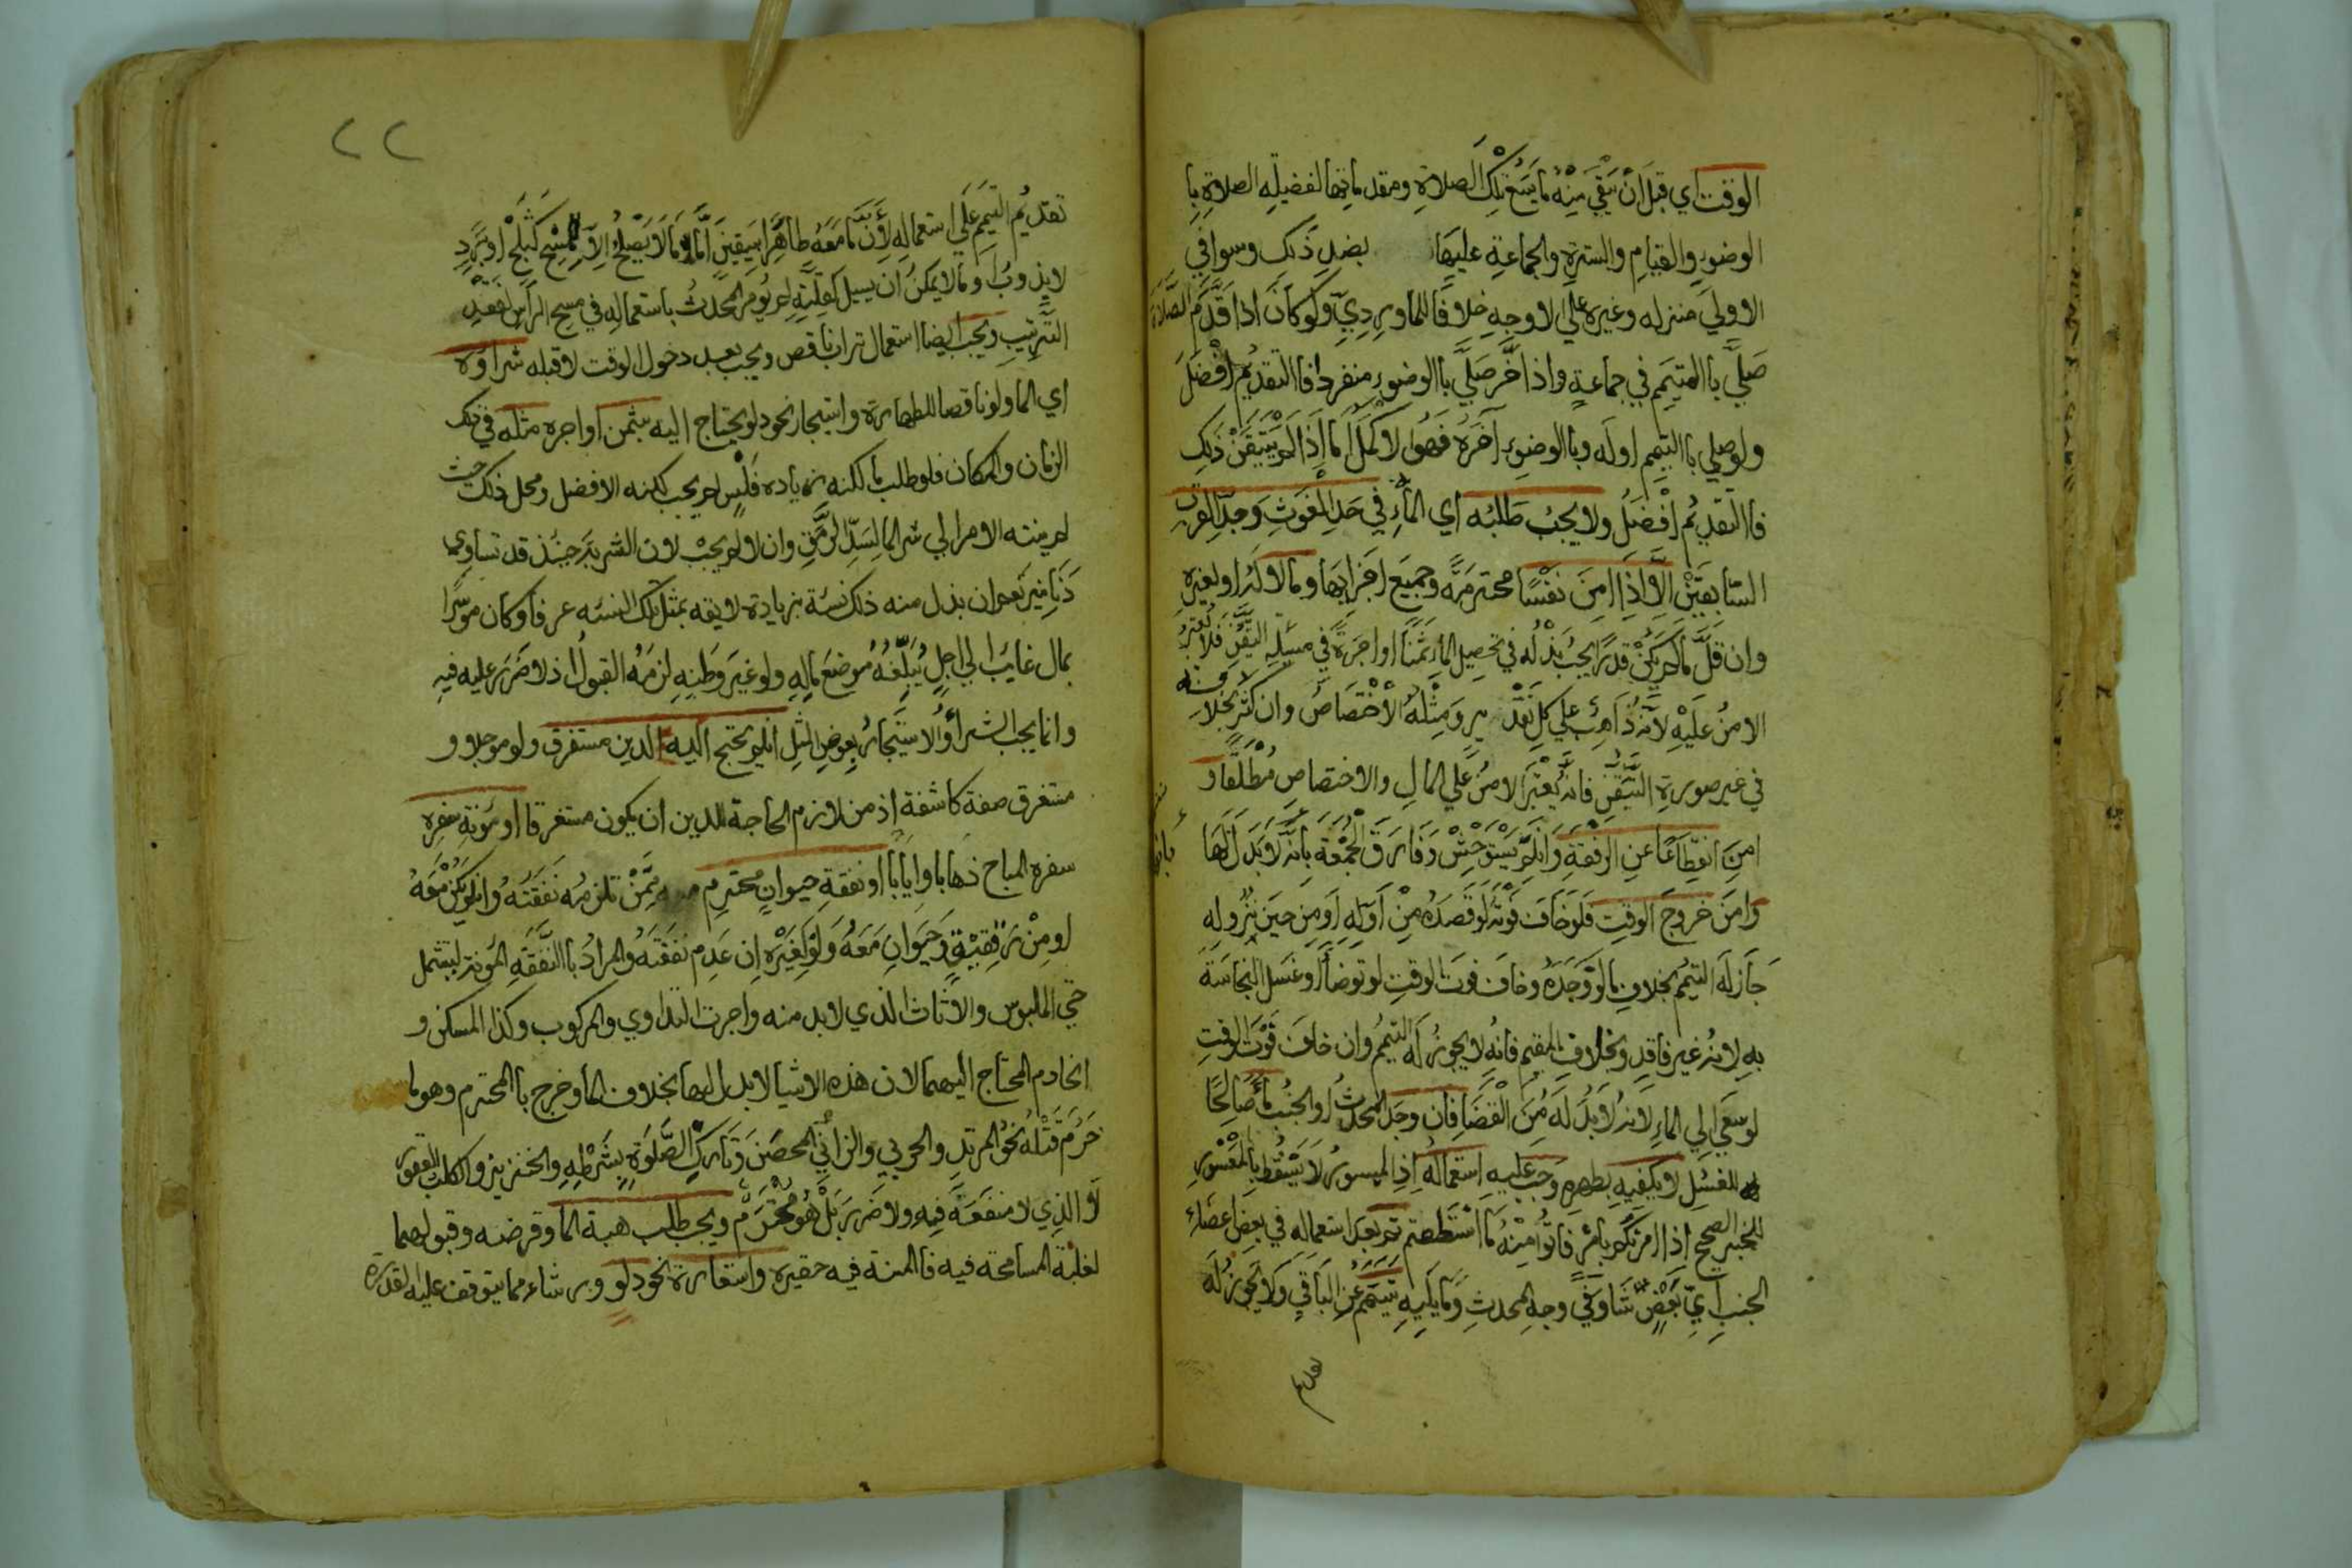 الوقت اي قبل ان يبقي منه ما يسع تلك الصلاة ومقدماتها لفضيلة الصلاة با
الوضوء والقيام والسترة والجماعة عليها بضد ذلك وسوا في
الاولي منزله وغيره علي الاوجه خلافا للماوردي ولو كان اذا قدم الصلاة
صلي با المتيمم في جماعة واذا اخر صلي با الوضوء منفردا فا التقديم افضل
ولو صلي با التيمم اوله وبا الوضوء اخره فهو الاكمل اما اذا لم يتيقن ذلك
فا التقديم افضل ولا يجب طلبه اي الماء في حد الغوث وحد القرب
السابقين الا اذا امن نفسا محترمة وجميع اجزايها ومالا له او لغيره
وان قل ما لم يكن قدرا يجب بذله في تحصيل الماء ثمنا او اجرة في مسئلة التيقن فلا يعتبر
الامن عليه لانه ذاهب علي كل تقدير ومثله الاختصاص وان كثر بخلافه
في غير صورة التيقن فانه يعتبر الامن علي المال والاختصاص مطلقا و
امن انقطاعا عن الرفقة وان لم يستوحش وفارق الجمعة بانه لا بدل لها
وامن خروج الوقت فلو خاف فوته لو قصده من اوله او من حين نزوله
جاز له التيمم بخلاف ما لو وجده وخاف فوت الوقت لو توضأ او غسل النجاسة
به لانه غير فاقد وبخلاف المقيم فانه لا يجوز له التيمم وان خاف فوت الوقت
لو سعي الي الماء لانه لا بد له من القضا فان وجد المحدث او الجنب ماء صالحا
للغسل لا يكفيه بطهره وجب عليه استعماله اذ الميسور لا يسقط بالمعسور
للخبر الصحيح اذا امرتكم بامر فاتوا منه ما استطعتم ثم بعد استعماله في بعض اعضاء
الجنب اي بعض شا وفي وجه المحدث وما يليه تيمم عن الباقي ولا يجوز له
تقديم
٢٢
تقديم التيمم علي استعماله لأن معه ماء طاهرا بيقين اما ما لا يصلح الا للمسح كثلج او برد
لا يذوب او ما لا يمكن ان يسيل لقلته لم يؤمر المحدث باستعماله في مسح الراس لفقد
الترتيب ويجب ايضا استعمال تراب ناقص ويجب بعد دخول الوقت لا قبله شراؤه
اي الما ولو ناقصا للطهارة واستيجار نحو دلو يحتاج اليه بثمن او اجره مثله في تلك
الزمان والمكان فلو طلب مالكه زيادة فلس لم يجب لكنه الافضل ومحل ذلك حيث
لم ينته الامر الي شرا الما لسد الرمق وان لا لم يجب لان الشربة حينئذ قد تساوي
دنانير نعم ان بذل منه ذلك نسئة بزيادة لايقه بمثل تلك النسئه عرفا وكان موسرا
بمال غايب الي اجل يبلغه موضع ماله ولو غير وطنه لزمه القبول اذ لا ضرر عليه فيه
وانما يجب الشراء والاستيجار بعوض المثل ان لم يحتج اليه لدين مستغرق ولو موجلا و
مستغرق صفة كاشفة اذ من لازم الحاجة للدين ان يكون مستغرقا او مؤنة سفره
سفره المباح ذهابا وايابا او نفقة حيوان محترم ممن تلزمه نفقته وان لم يكن معه
او من رفقته وحيوان معه ولو لغيره ان عدم نفقته والمراد با النفقة المؤنة ليشمل
حتي الملبوس والاثاث الذي لا بد منه واجرة التداوي والمركوب وكذا المسكن و
الخادم المحتاج اليهما لان هذه الاشيا لا بدل لها بخلاف الما وخرج با المحترم وهو ما
حرم قتله نحو المرتد والحربي والزاني المحصن وتارك الصلوة بشرطه والخنزير والكلب العقور
لا الذي لا منفعة فيه ولا ضرر بل هو محترم ويجب طلب هبة الما وقرضه وقبولهما
لغلبة المسامحة فيه فا المنة فيه حقيرة واستعارة نحو دلو ورشاء مما يتوقف عليه القدرة